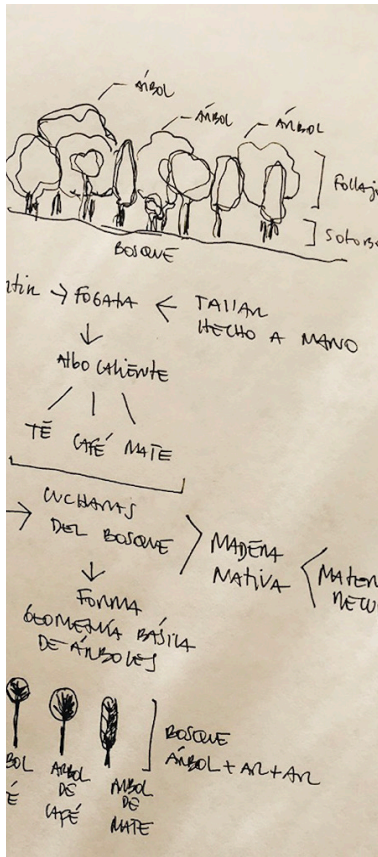 ÁRBOL
ÁRBOL
ÁRBOL
Follaj
Sotob
BOSQUE
rtir → FOGATA ← TALLAR
HECHO A MANO
Algo caliente
TÉ CAFÉ MATE
CUCHARAS
DEL BOSQUE
MADERA
NATIVA
MATER
FORMA
GEOMETRÍA BÁSICA
DE ÁRBOLES
BOL
É
ÁRBOL
DE
CAFÉ
ÁRBOL
DE
MATE
BOSQUE
ÁRBOL + AR + AR